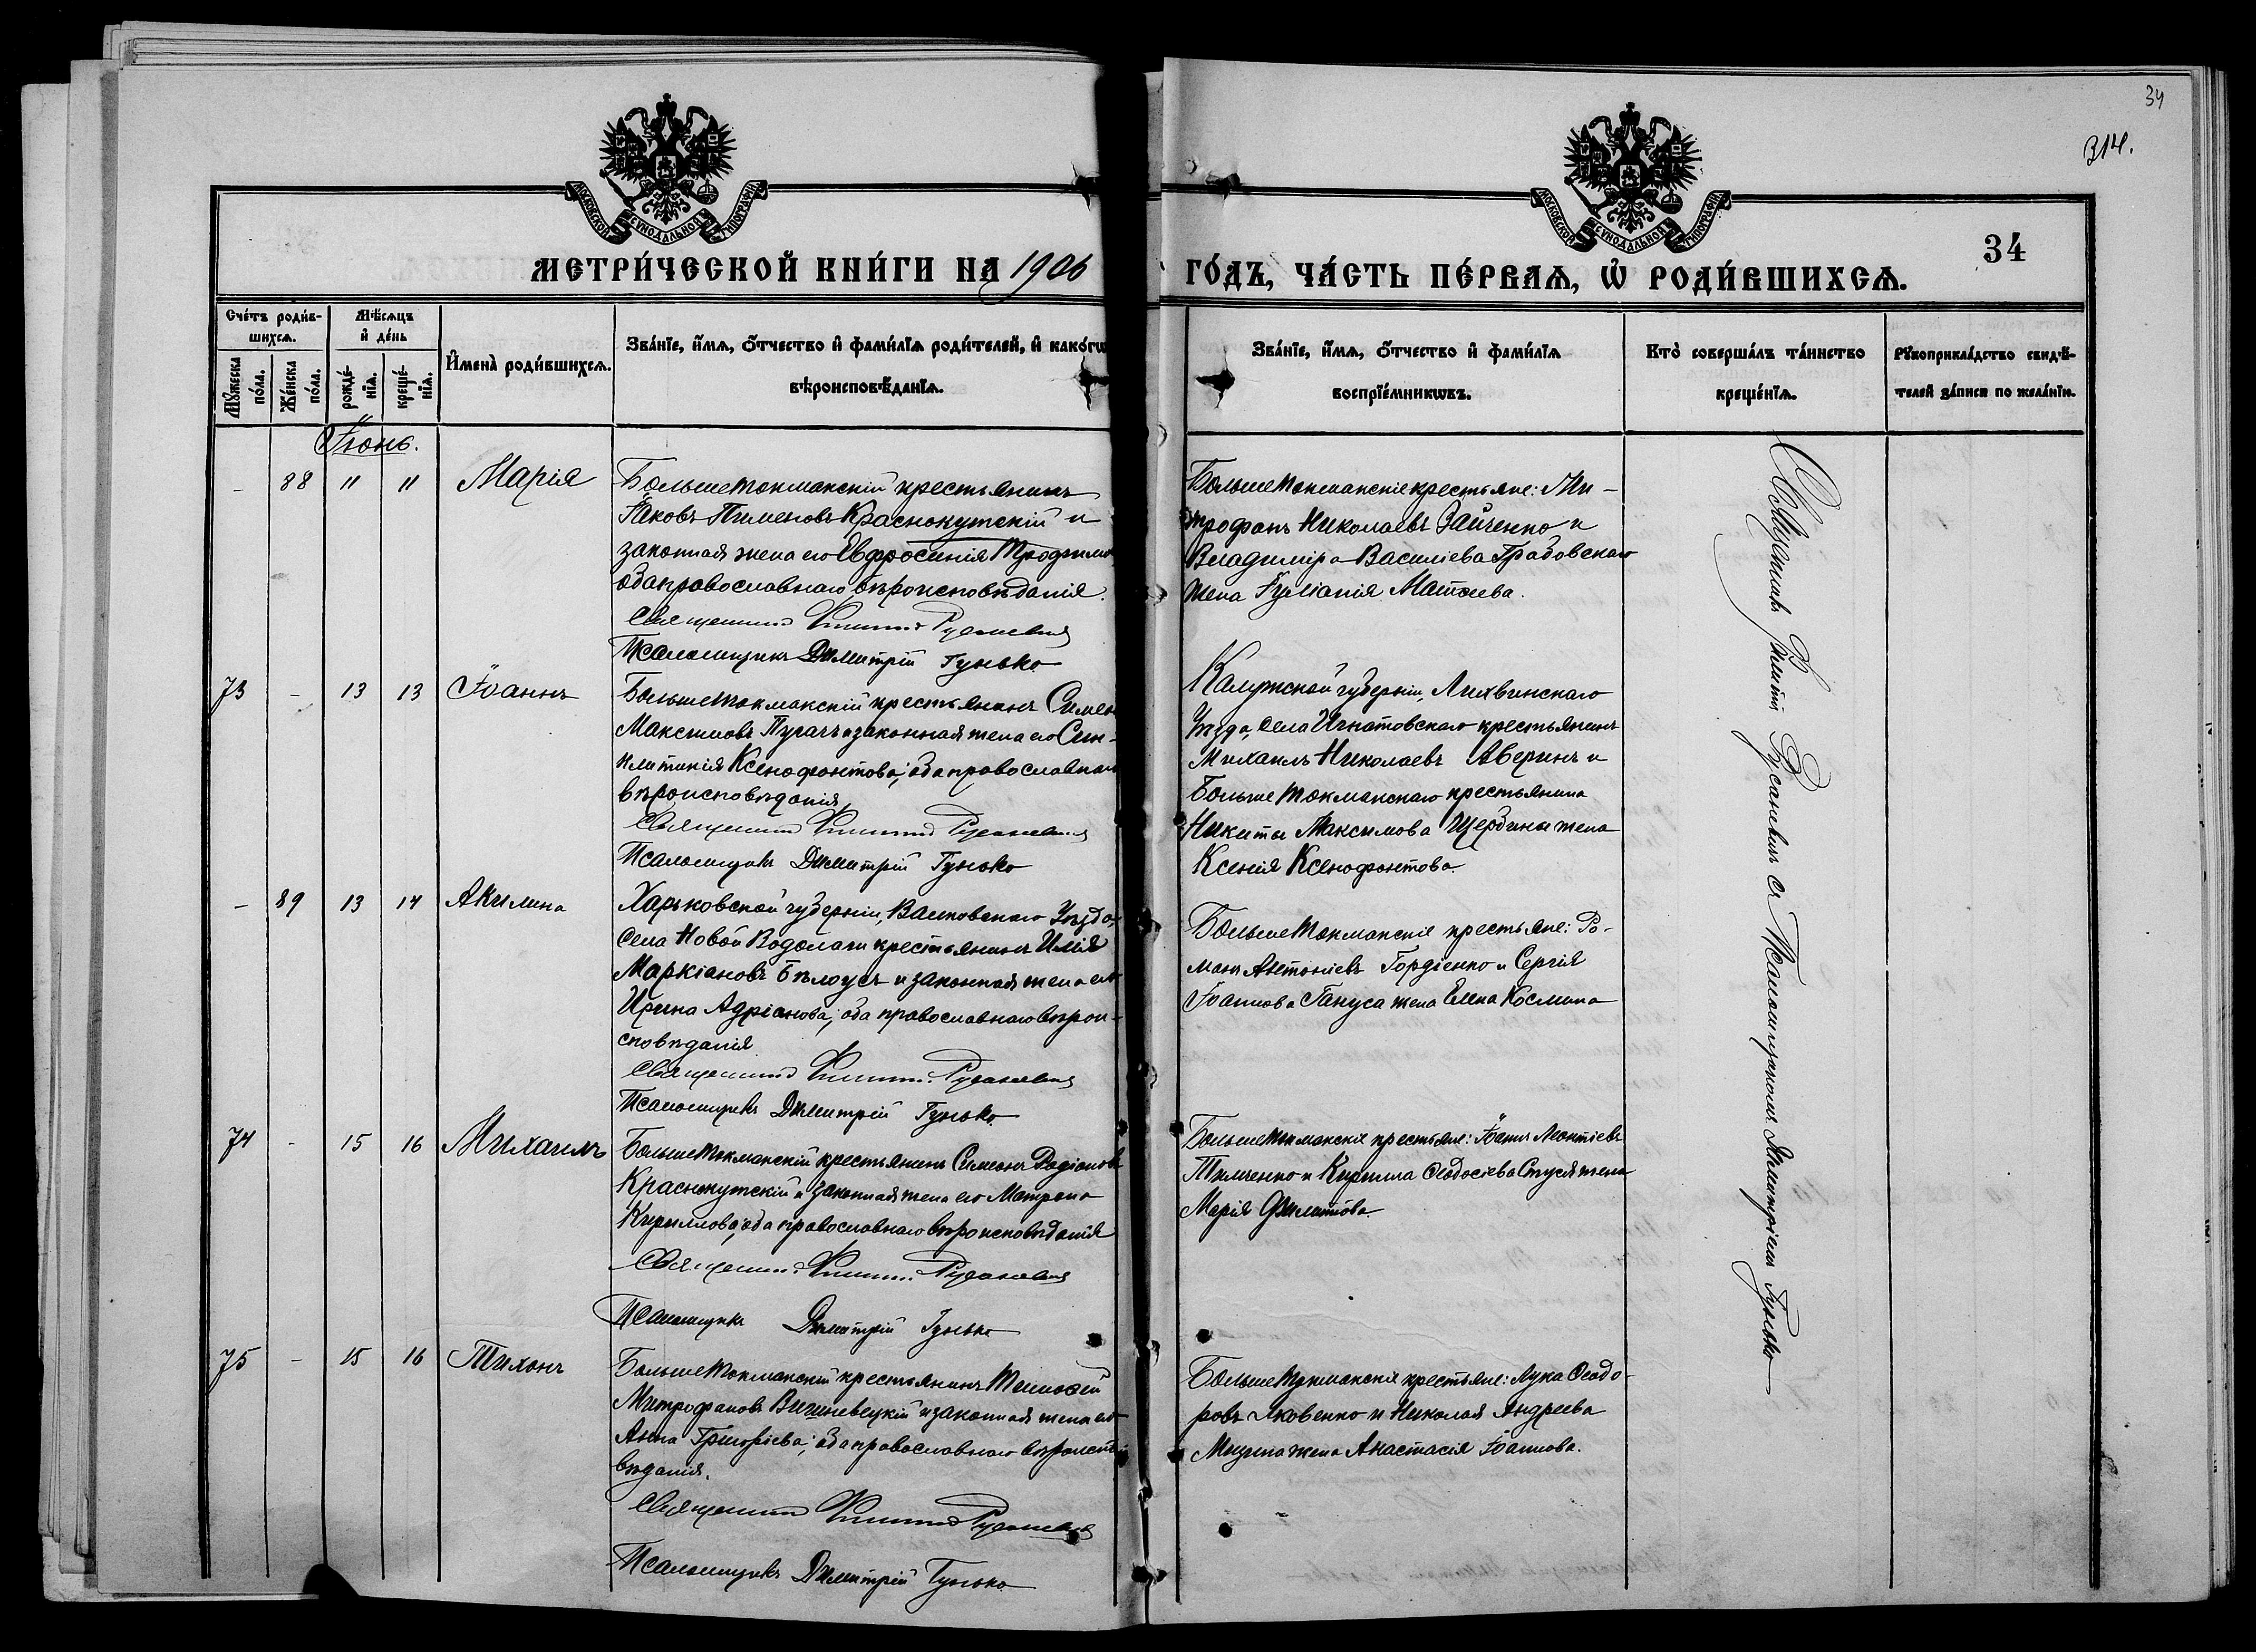 34
314.
МОСКОВСКОЙ СѴНОДАЛЬНОЙ ТИПОГРАФІИ
МОСКОВСКОЙ СѴНОДАЛЬНОЙ ТИПОГРАФІИ
МЕТРИ́ЧЕСКОЙ КНИ́ГИ НА 1906
ГО́ДЪ, ЧА́СТЬ ПЕ́РВАѦ, Ѡ҆ РОДИ́ВШИХСѦ.
34
Сче́тъ роди́в-
шихсѧ.
Мѣ́сѧцъ
и҆ де́нь
Мꙋ́жеска по́ла.
Же́нска по́ла.
рожде́-нїѧ.
креще́-нїѧ.
И҆мена̀ роди́вшихсѧ.
Зва́нїе, и҆́мѧ, ѻ҆́тчество и҆ фами́лїѧ роди́телей, и҆ како́гѡ
вѣроисповѣ́данїѧ.
Зва́нїе, и҆́мѧ, ѻ҆́тчество и҆ фами́лїѧ
воспрїе́мникѡвъ.
Кто̀ соверша́лъ та́инство
креще́нїѧ.
Рꙋкоприкла́дство свидѣ́-
телей за́писи по жела́нїю.
Іюнь.
- 88 11 11 Марія
Больше Токмакскій крестьянинъ
Іаковъ Пименовъ Краснокутскій и
законная жена его Евфросинія Трофимо
оба православнаго вѣроисповѣданія.
Священникъ
Псаломщикъ Димитрій Гунько
Больше Токмакскіе крестьяне: Ми-
трофанъ Николаевъ Зайченко и
Владиміра Василіева Грабовскаго
жена Іуліанія Матѳеева.
73 - 13 13 Іоаннъ
Больше Токмакскій крестьянинъ Симеон
Максимовъ Пугачъ и законная жена его Син-
клитикія Ксенофонтова; оба православнаго
вѣроисповѣданія
Священникъ
Псаломщикъ Димитрій Гунько
Калужской губерніи, Лихвинскаго
Уѣзда, села Игнатовскаго крестьянинъ
Михаилъ Николаевъ Аверинъ и
Больше Токмакскаго крестьянина
Никиты Максимова Щербины жена
Ксенія Ксенофонтова.
- 89 13 14 Акилина
Харьковской губерніи, Валковскаго Уѣзда,
села Новой Водолаги крестьянинъ Илія
Маркіановъ Бѣлоусъ и законная жена его
Ирина Адріанова; оба православнаго вѣрои-
сповѣданія
Священникъ
Псаломщикъ Димитрій Гунько.
Больше Токмакскіе крестьяне: Ро-
манъ Антоніевъ Гордіенко и Сергія
Іоаннова Гануса жена Елена Космина
74 - 15 16 Михаилъ
Больше Токмакскій крестьянинъ Симеонъ Родіоновъ
Краснокутскій и законная жена его Матрона
Кириллова; оба православнаго вѣроисповѣданія
Священникъ
Псаломщикъ Димитрій Гунько
Больше Токмакскіе крестьяне: Іоаннъ Леонтіевъ
и Кирилла Ѳеодосіева Стуся жена
Марія Филиппова.
75 - 15 16 Тихонъ
Больше Токмакскій крестьянинъ Тимоѳей
Митрофановъ Вишневецкій и законная жена его
Анна Григоріева; оба православнаго вѣроиспо
вѣданія.
Священникъ
Псаломщикъ Димитрій Гунько
Больше Токмакскіе крестьяне: Лука Ѳеодо-
ровъ Яковенко и Николая Андреева
жена Анастасія Іоаннова.
Священникъ съ Псаломщикомъ Димитріемъ Гунько